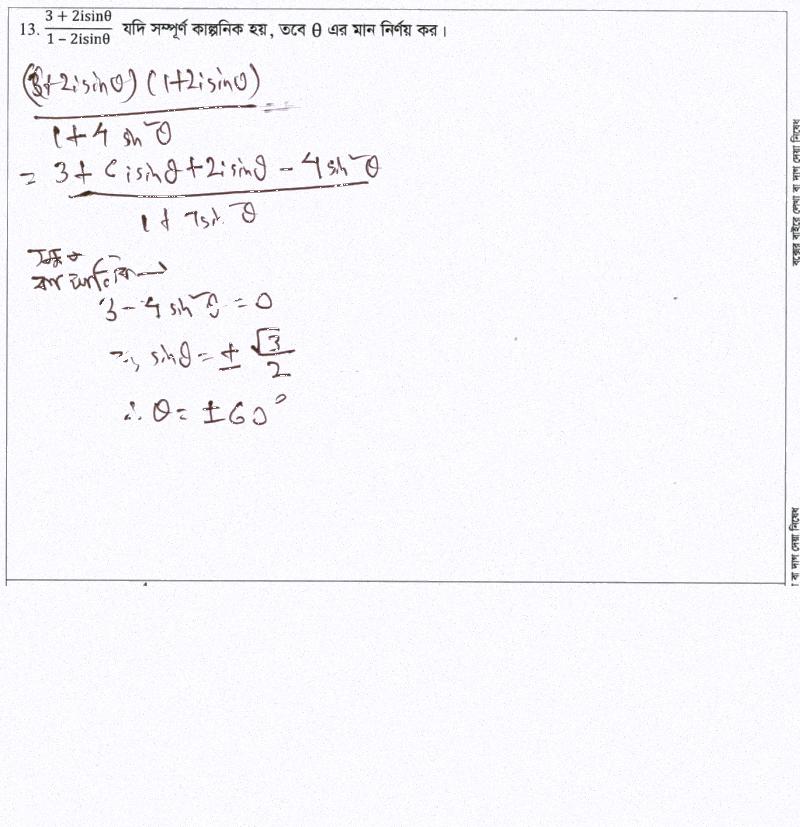 13. (3 + 2isinθ)/(1 − 2isinθ) যদি সম্পূর্ণ কাল্পনিক হয়, তবে θ এর মান নির্ণয় কর।
(3+2isinθ)(1+2isinθ) =
1+4 sin²θ
= 3+6isinθ+2isinθ − 4sin²θ
1+4sin²θ
কাল্পনিক →
3−4 sin²θ = 0
⇒ sinθ = ± √3/2
∴ θ = ±60°
বক্সের বাইরে লেখা বা দাগ দেয়া নিষেধ
বা দাগ দেয়া নিষেধ